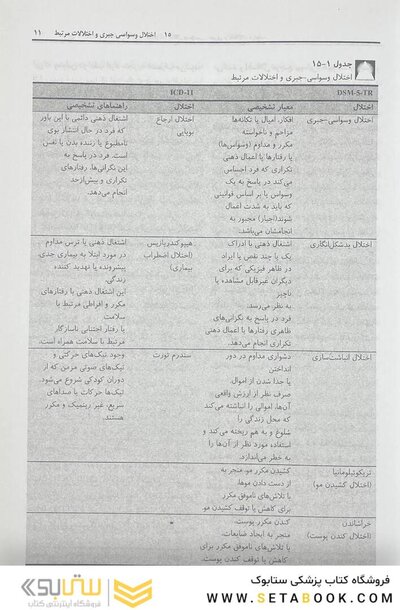 ۱۵ اختلال وسواسی جبری و اختلالات مرتبط ۱۱
جدول ۱-۱۵
اختلال وسواسی-جبری و اختلالات مرتبط
DSM-5-TR
ICD-11
اختلال
معیار تشخیصی
اختلال
راهنماهای تشخیصی
اختلال وسواسی-جبری
افکار، امیال یا تکانه‌ها
مزاحم و ناخواسته
مکرر و مداوم (وسواس‌ها)
یا رفتارها یا اعمال ذهنی
تکراری که فرد احساس
می‌کند در پاسخ به یک
وسواس یا بر اساس قوانینی
که باید به شدت اعمال
شوند(اجبار) مجبور به
انجامشان می‌باشد.
اختلال ارجاع
بویایی
اشتغال ذهنی دائمی با این باور
که فرد در حال انتشار بوی
نامطبوع یا زننده بدن یا نفس
است. فرد در پاسخ به
این نگرانی‌ها، رفتارهای
تکراری و بیش‌ازحد
انجام می‌دهد.
اختلال بدشکل‌انگاری
اشتغال ذهنی با ادراک
یک یا چند نقص یا ایراد
در ظاهر فیزیکی که برای
دیگران غیرقابل مشاهده یا
ناچیز
به نظر می‌رسد.
فرد در پاسخ به نگرانی‌های
ظاهری رفتارها یا اعمال ذهنی
تکراری انجام می‌دهد.
هیپوکندریازیس
(اختلال اضطراب
بیماری)
اشتغال ذهنی یا ترس مداوم
در مورد ابتلا به بیماری جدی،
پیشرونده یا تهدید کننده
زندگی.
این اشتغال ذهنی با رفتارهای
مکرر و افراطی مرتبط با
سلامت،
یا رفتار اجتنابی ناسازگار
مرتبط با سلامت همراه است.
اختلال انباشت‌سازی
دشواری مداوم در دور
انداختن
یا جدا شدن از اموال،
صرف نظر از ارزش واقعی
آن‌ها، اموالی را انباشته می‌کند
که محل زندگی را
شلوغ و به هم ریخته می‌کند و
استفاده مورد نظر از آن‌ها را
به خطر می‌اندازد.
سندرم تورت
وجود تیک‌های حرکتی و
تیک‌های صوتی مزمن که از
دوران کودکی شروع می‌شود
تیک‌ها حرکات یا صداهای
سریع، غیر ریتمیک و مکرر
هستند.
تریکوتیلومانیا
(اختلال کشیدن مو)
کشیدن مکرر مو، منجر به
از دست دادن موها،
با تلاش‌های ناموفق مکرر
برای کاهش یا توقف کشیدن مو.
خراشاندن
(اختلال کندن پوست)
کندن مکرر پوست،
منجر به ایجاد ضایعات،
با تلاش‌های ناموفق مکرر برای
کاهش یا توقف کندن پوست.
*
ستابوک
فروشگاه اینترنتی کتاب
فروشگاه کتاب پزشکی ستابوک
WWW.SETABOOK.COM